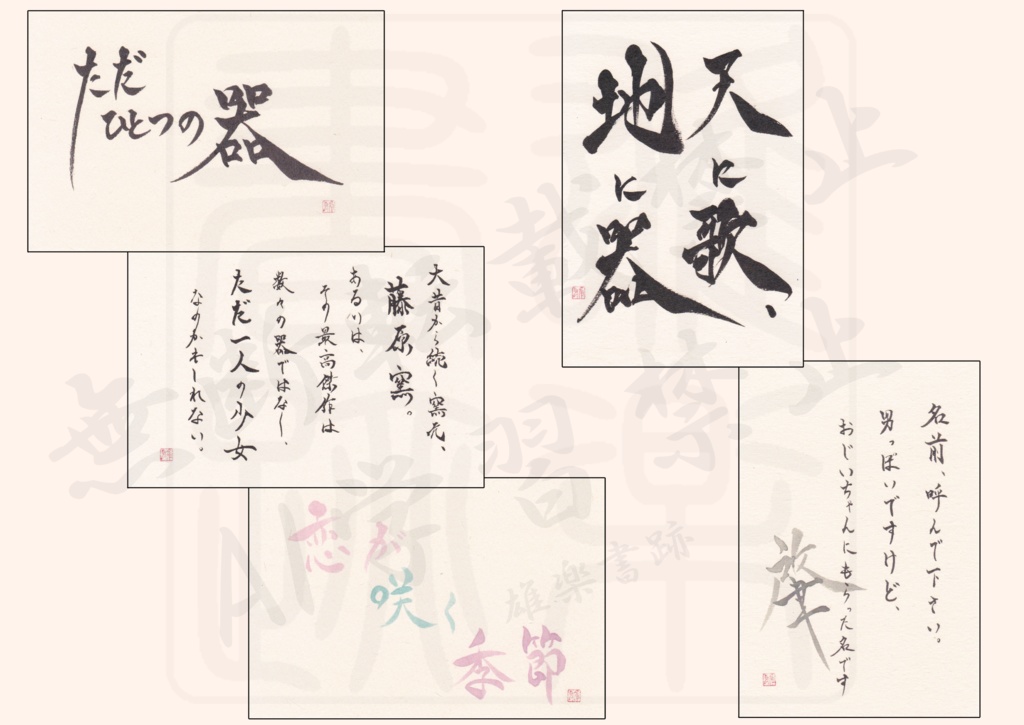 ただ
ひとつの器
天に歌、
地に器
大昔から続く窯元、
藤原窯。
あるいは、
その最高傑作は
数々の器ではなく、
ただ一人の少女
なのかもしれない。
恋が
咲く
季節
名前、呼んで下さい。
男っぽいですけど、
おじいちゃんにもらった名です
肇
無断転載禁止
AI学習禁止
雄樂書跡